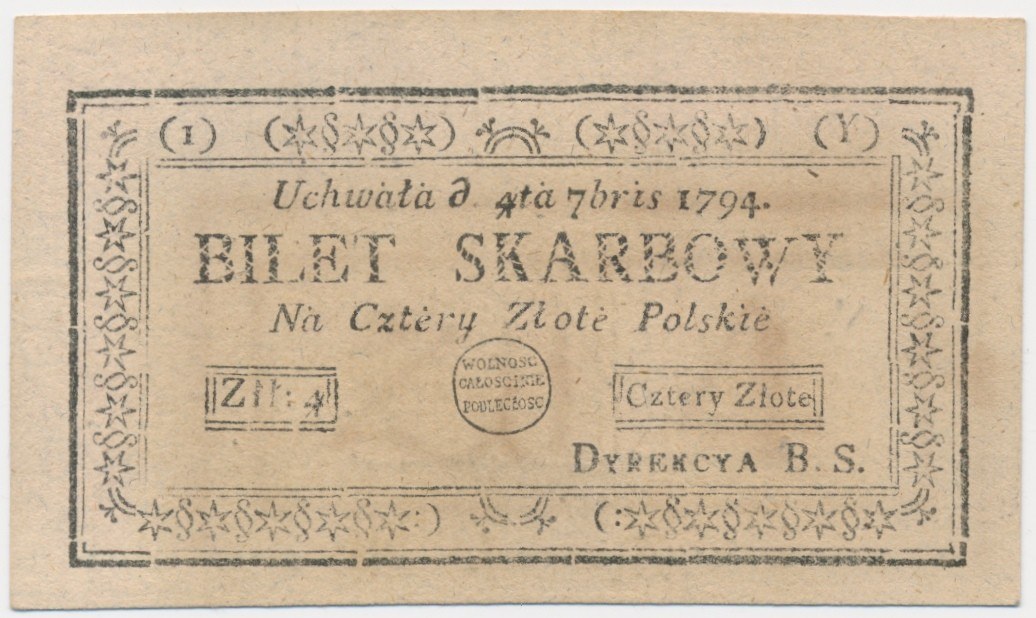 (1) (Y)
Uchwałà d. 4tà 7bris 1794.
BILET SKARBOWY
Nà Cztèry Złotè Polskiè
Złł: 4
WOLNOSC
CAŁOSC I NIE
PODLEGŁOSC
Cztery Złote
DYREKCYA B. S.